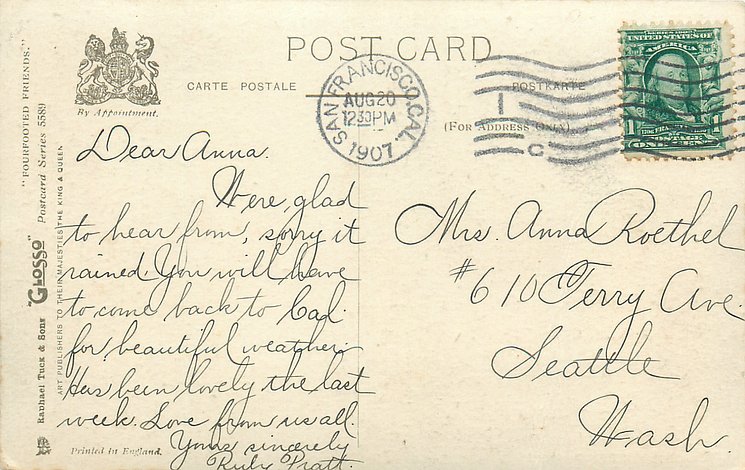 POST CARD
CARTE POSTALE
POSTKARTE
(FOR ADDRESS ONLY)
By Appointment.
SAN FRANCISCO, CAL.
AUG 20
12 30 PM
1907
1
C
SERIES 1902
UNITED STATES OF
AMERICA
1
1
POSTAGE
ONE CENT
"FOURFOOTED FRIENDS."
Raphael Tuck & Sons "GLOSSO" Postcard Series 5589
ART PUBLISHERS TO THEIR MAJESTIES THE KING & QUEEN
Printed in England.
Dear Anna.
Were, glad
to hear from, sorry it
rained. You will have
to come back to Cal.
for beautiful weather.
Has been lovely the last
week. Love from us all.
Yours sincerely
Ruby Pratt.
Mrs. Anna Roethel
#610 Terry Ave.
Seattle
Wash.